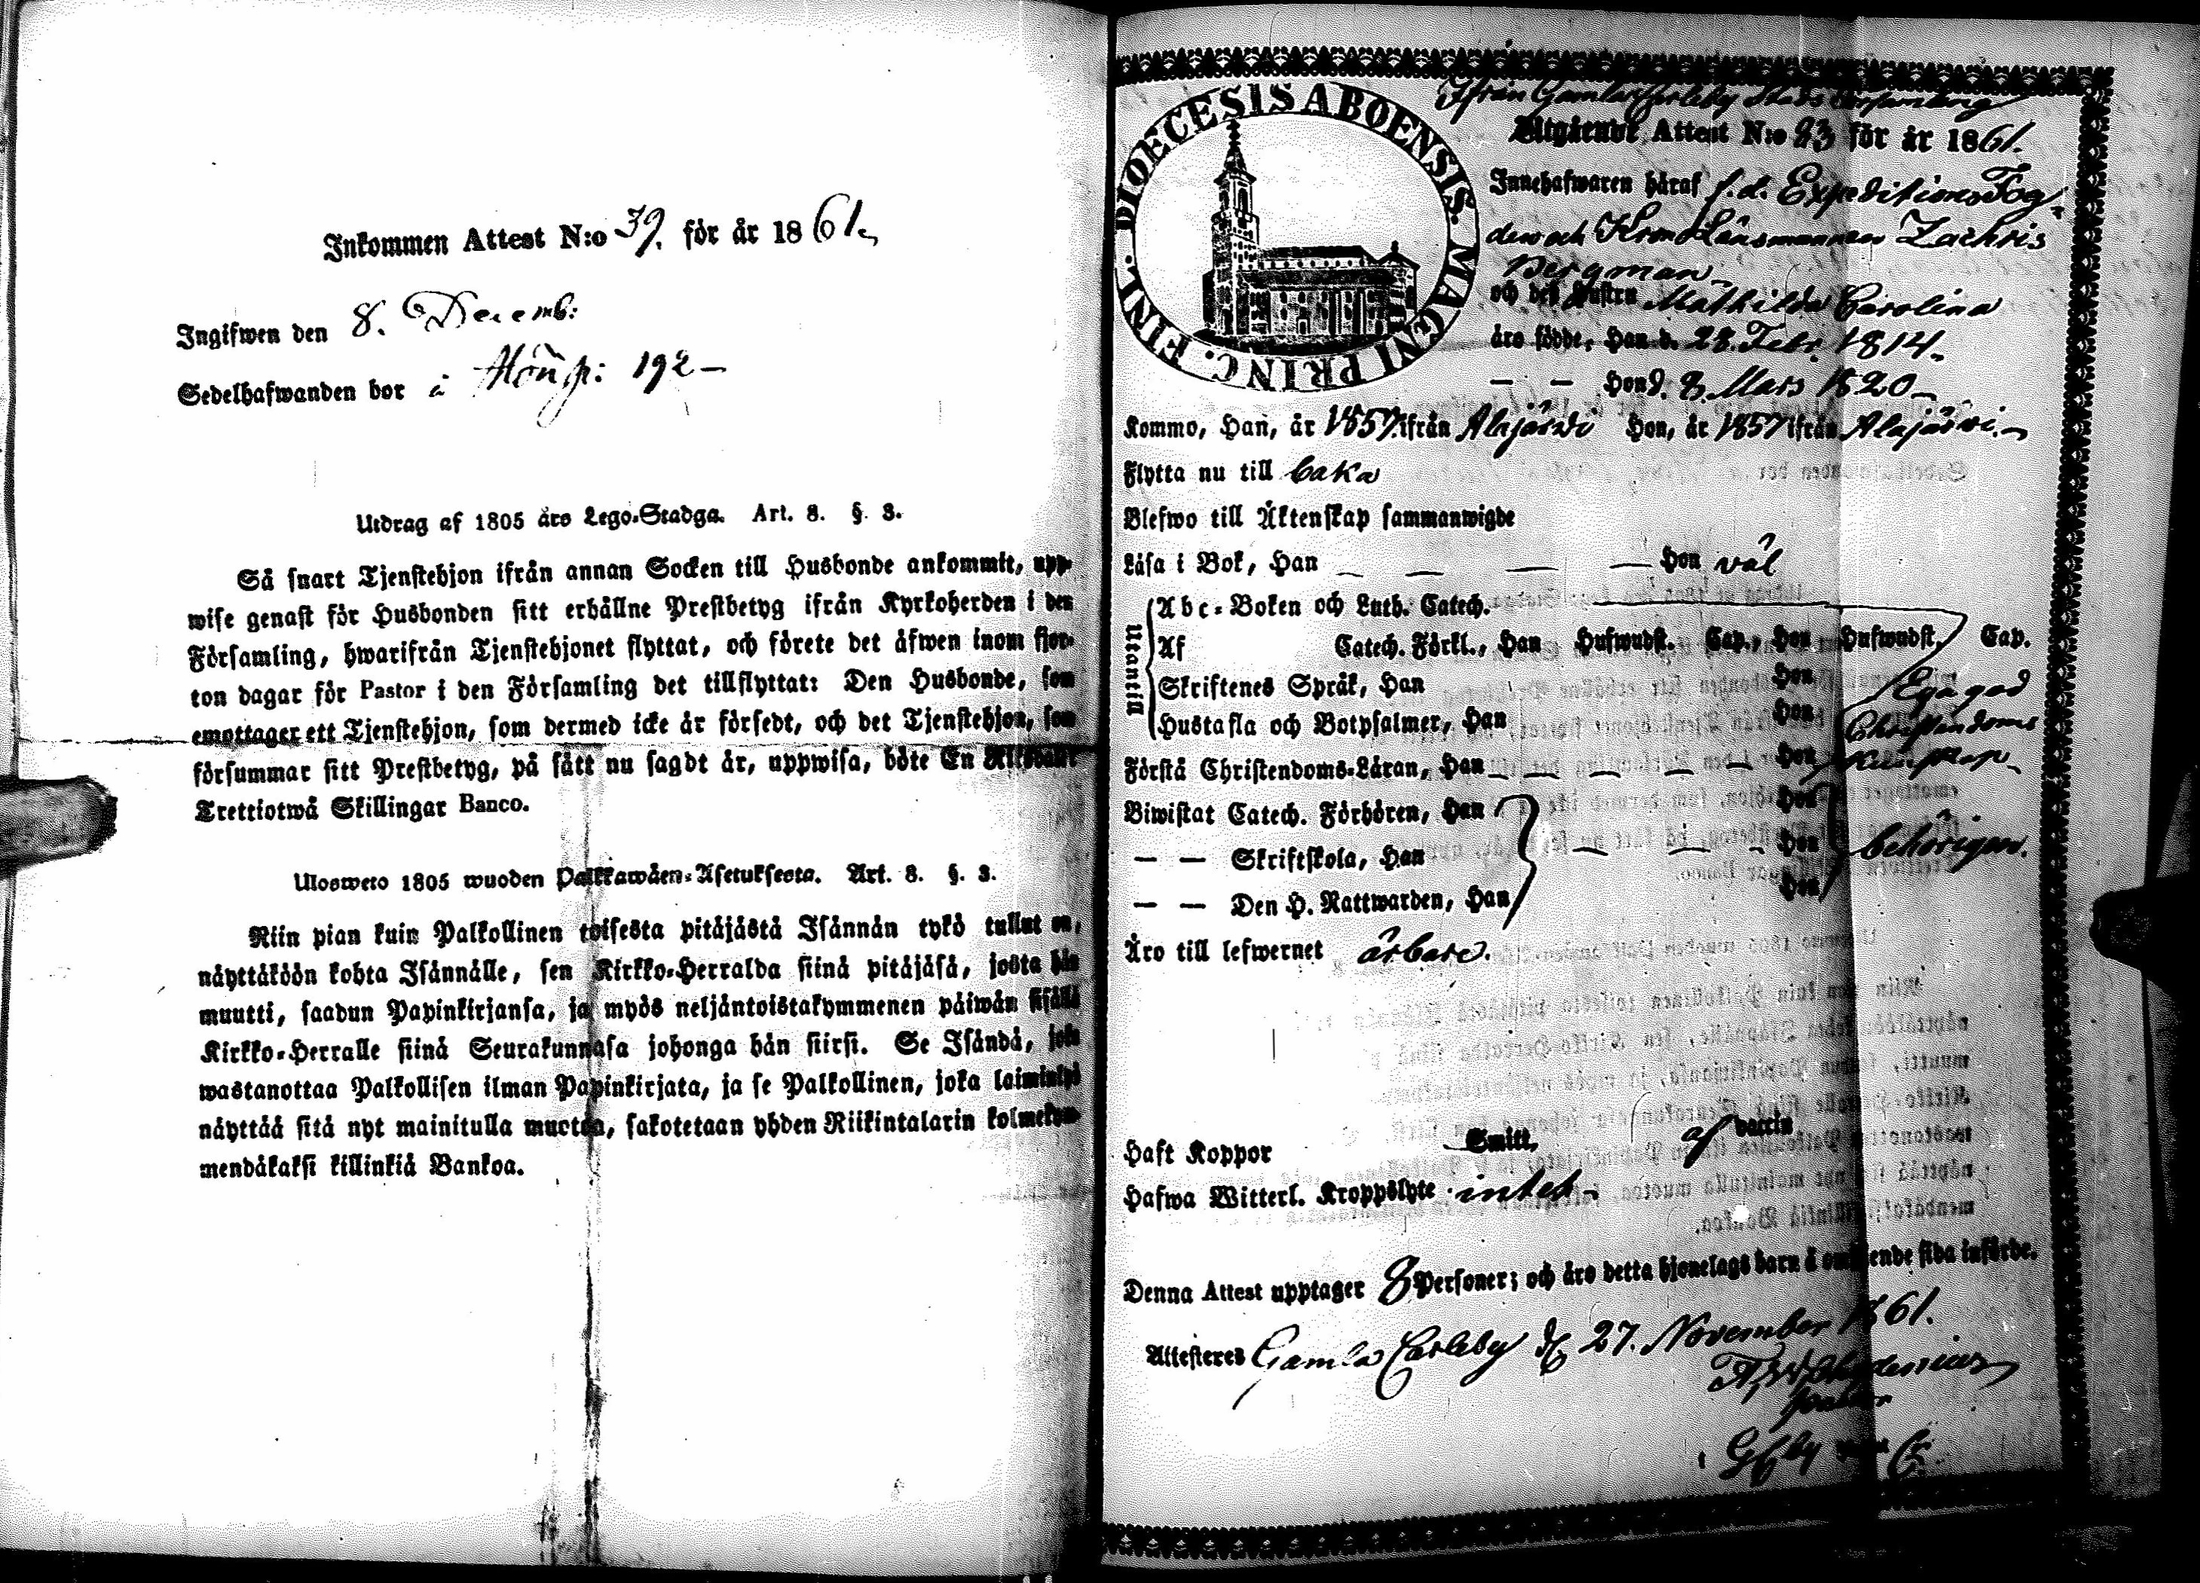 Inkommen Attest N:o 39. för år 1861.
Ingifwen den 8. Decemb:
Sedelhafwanden bor å 192 –
Utdrag af 1805 års Lego-Stadga. Art. 8. §. 3.
Så snart Tjenstehjon ifrån annan Socken till Husbonde ankommit, upp-
wise genast för Husbonden sitt erhållne Prestbetyg ifrån Kyrkoherden i den
Församling, hwarifrån Tjenstehjonet flyttat, och förete det äfwen inom fjor-
ton dagar för Pastor i den Församling det tillflyttat: Den Husbonde, som
emottager ett Tjenstehjon, som dermed icke är försedt, och det Tjenstehjon, som
försummar sitt Prestbetyg, på sätt nu sagdt är, uppwisa, böte En Riksdaler
Trettiotwå Skillingar Banco.
Ulosweto 1805 wuoden Palkkawäen-Asetuksesta. Art. 8. §. 3.
Niin pian kuin Palkollinen toisesta pitäjästä Isännän tykö tullut on,
näyttäköön kohta Isännälle, sen Kirkko-Herralda siinä pitäjäsä, josta hän
muutti, saadun Papinkirjansa, ja myös neljäntoistakymmenen päiwän sisällä
Kirkko-Herralle siinä Seurakunnasa johonga hän siirsi. Se Isändä, joka
wastanottaa Palkollisen ilman Papinkirjata, ja se Palkollinen, joka laiminlyö
näyttää sitä nyt mainitulla muotoa, sakotetaan yhden Riikintalarin kolmekym-
mendäkaksi killinkiä Bankoa.
DIOECESIS ABOENSIS. MAGNI PRINC. FINL.
Ifrån Gamlacarleby Stads Församling
Utgående Attest N:o 83 för år 1861.
Innehafwaren häraf f.d. Expeditions Fog-
den och Krono Länsmannen Zachris
Bergman
och des hustru Mathilda Carolina
äro födde, Han d. 28. Febr. 1814.
— — Hon d. 8. Mars 1820 –
Kommo, Han, år 1857. ifrån Alajärwi Hon, år 1857 ifrån Alajärwi. –
Flytta nu till baka
Blefwo till Äktenskap sammanwigde
Läsa i Bok, Han — — — — Hon väl
Utantill
Abc-Boken och Luth. Catech.
Af Catech. Förkl., Han Hufwudst. Cap., Hon Hufwudst. Cap.
Skriftenes Språk, Han Hon Ega god
Hustafla och Botpsalmer, Han Hon Christendoms
Förstå Christendoms-Läran, Han — — — — — Hon kunskap –
Biwistat Catech. Förhören, Han Hon
— — Skriftskola, Han — — — Hon behörigen.
— — Den H. Nattwarden, Han Hon
Äro till lefwernet ärbare.
Haft Koppor Smitt. af vaccin
Hafwa Witterl. Kroppslyte intet –
Denna Attest upptager 8 Personer; och äro detta hjonelags barn å omstående sida införde.
Attesteres Gamla Carleby d. 27. November 1861.